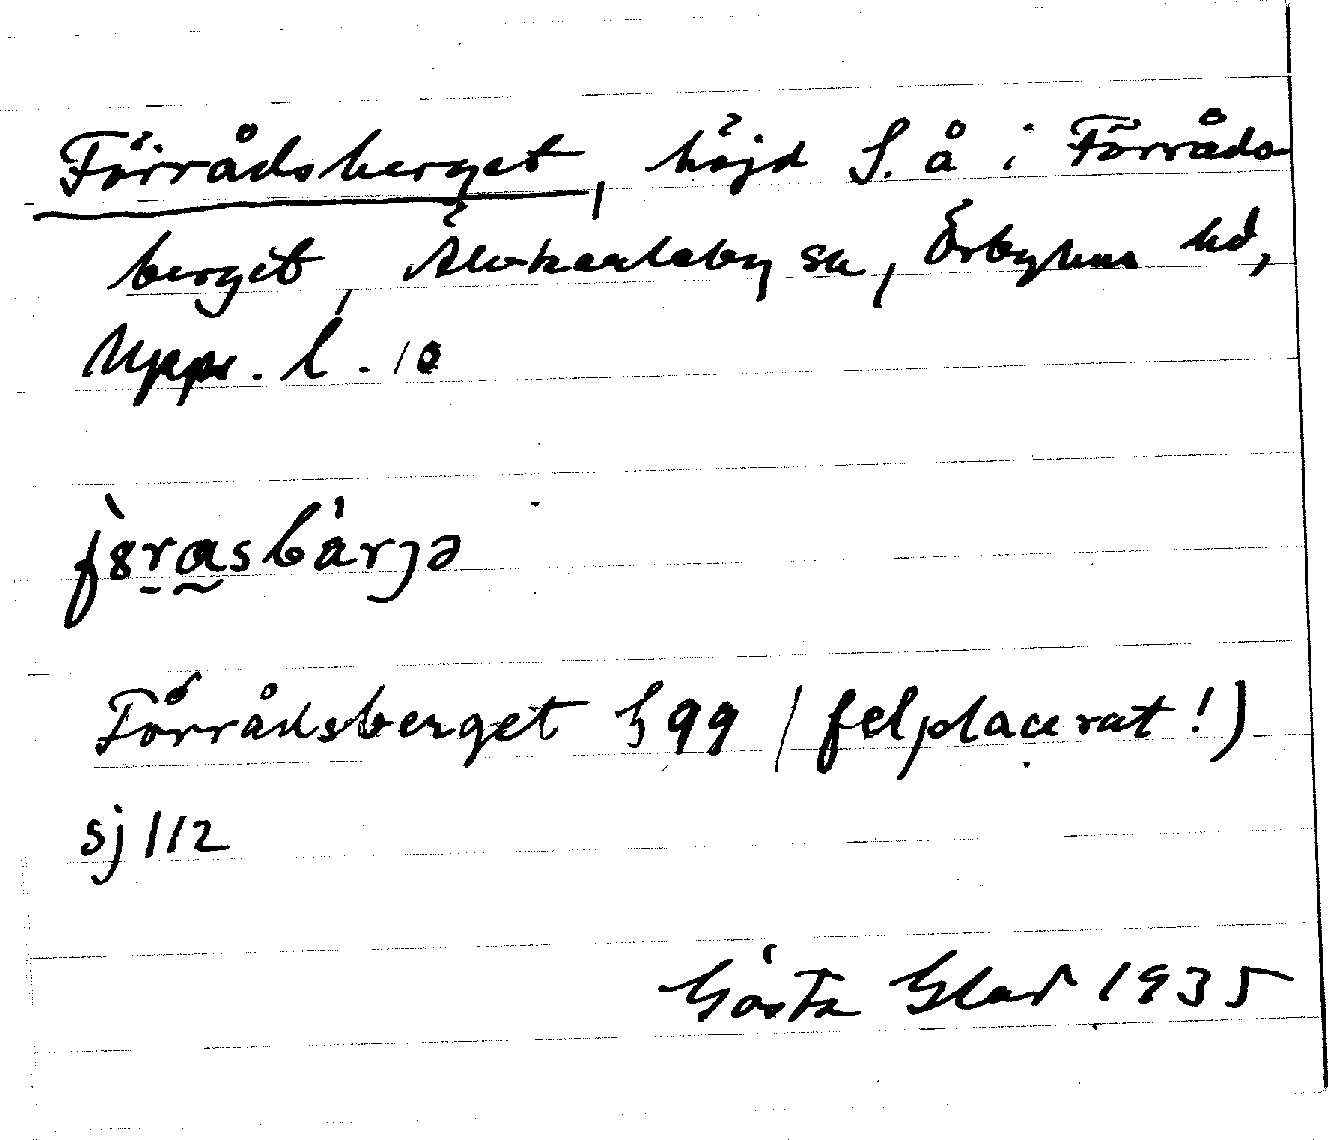 Förrådsberget, höjd S. å i Förråds-
berget, Älvkarleby sn, Örbyhus hd,
Upps. l. 10
fȣrasbärjə
Förrådsberget h 99 (felplacerat!)
sj 112
Gösta Glad 1935